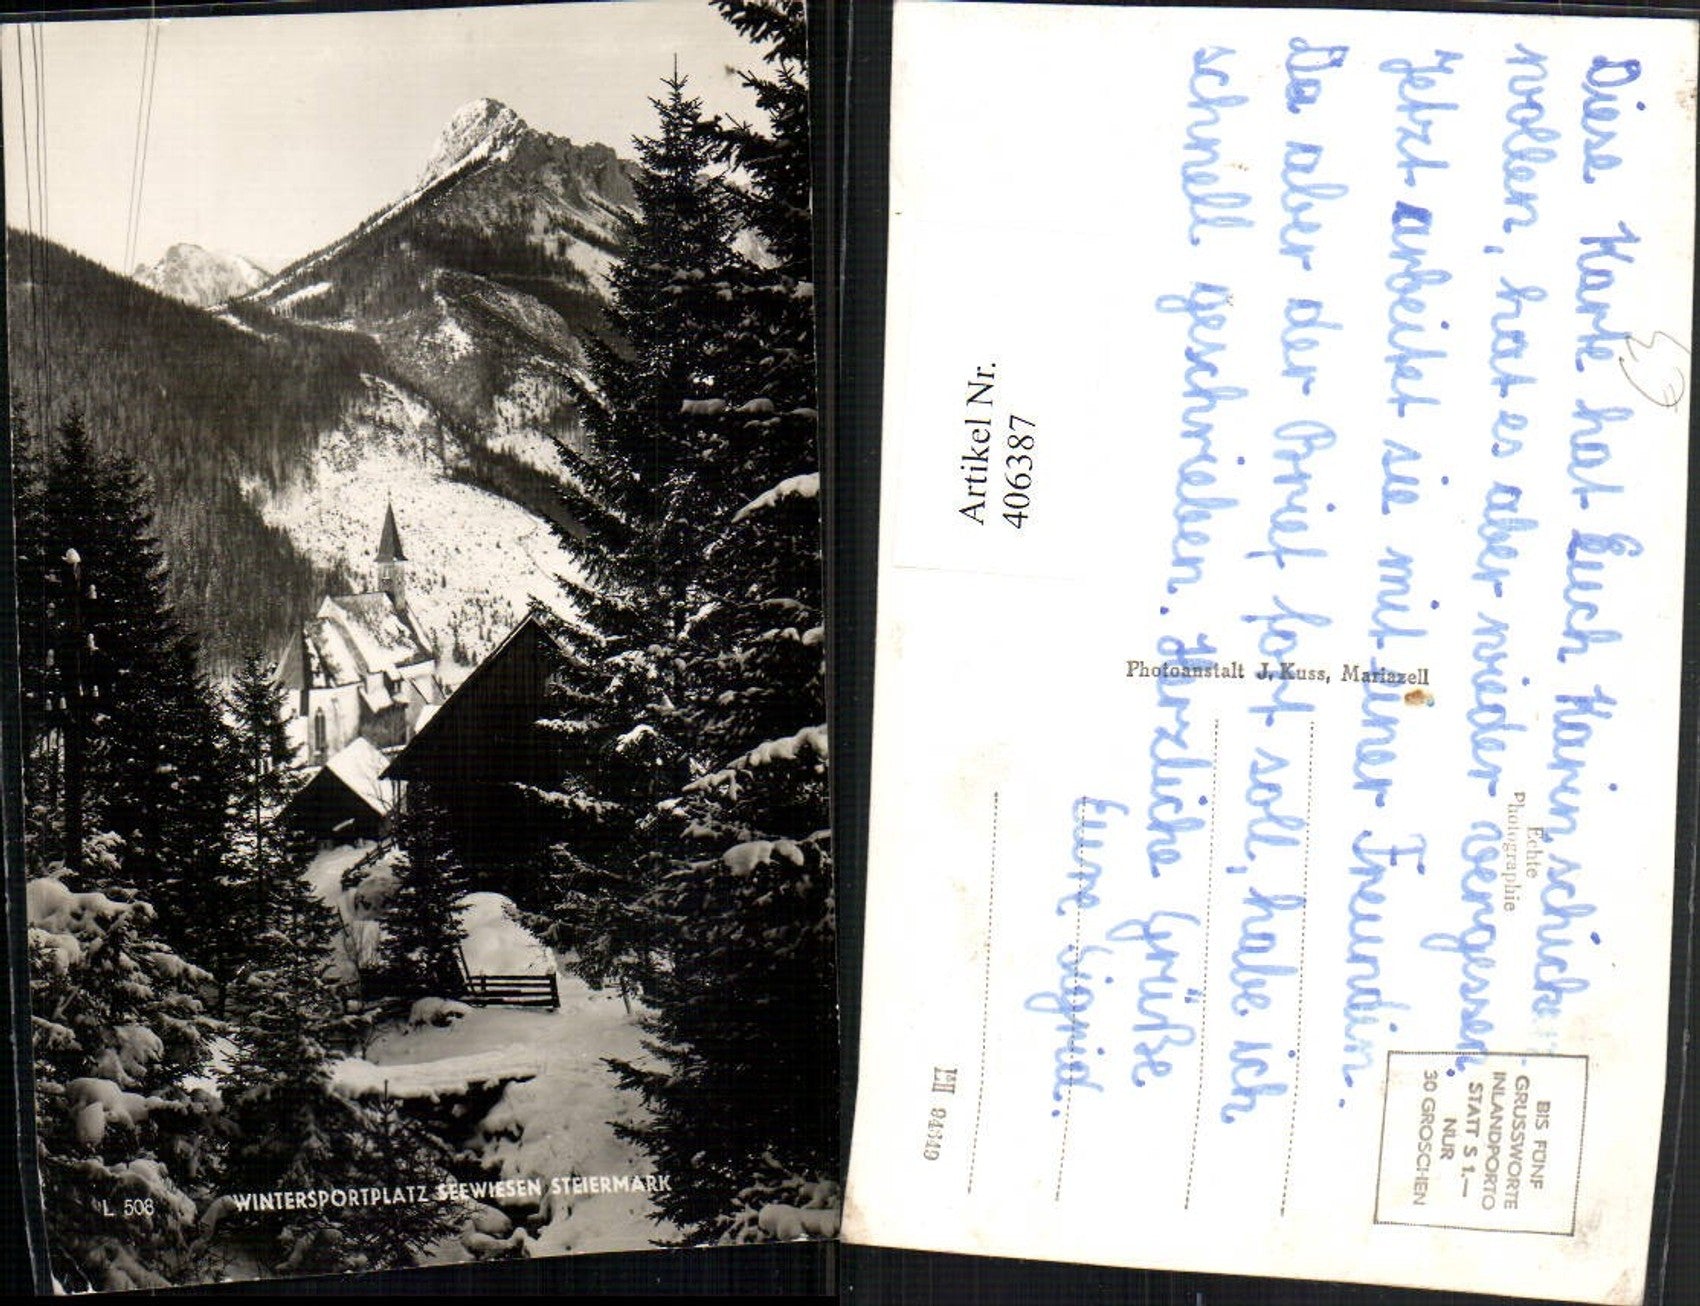 L 508
WINTERSPORTPLATZ SEEWIESEN STEIERMARK
Diese Karte hat Euch Karin schicken
wollen, hat es aber wieder vergessen.
Jetzt arbeitet sie mit einer Freundin.
Da aber der Brief fort soll, habe ich
schnell geschrieben. Herzliche Grüße
Eure Sigrid.
Artikel Nr.
406387
Photoanstalt J. Kuss, Mariazell
Echte
Photographie
BIS FÜNF
GRUSSWORTE
INLANDPORTO
STATT S 1.—
NUR
30 GROSCHEN